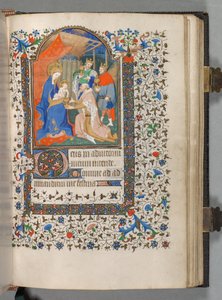 Deus in adiutorium
meum intende.
Domine ad ad
iuuandum me festina